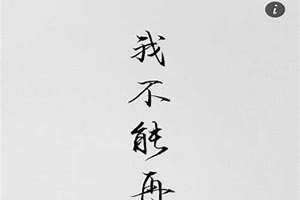 我不能再